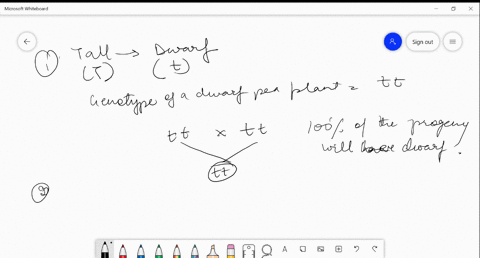 Microsoft Whiteboard
Sign out
① Tall → Dwarf
(T) (t)
Genotype of a dwarf pea plant = tt
tt x tt
tt
100% of the progeny
will be dwarf.
②